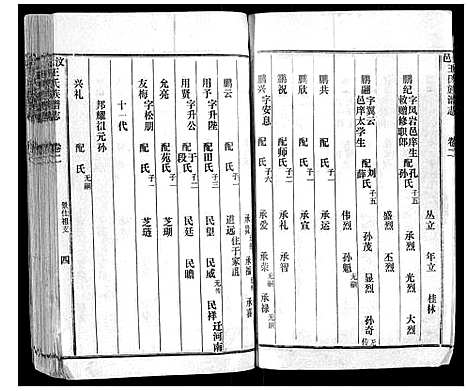 邑王氏族譜志 卷二
丛立 年立 桂林
鹏纪 字凤岩邑庠生 敕赠修职郎 配孔氏 孙氏 子五
承烈 光烈 大烈
盛烈 丕烈
鹏翮 字翼云 邑庠太学生 配刘氏 薛氏 子五
孙茂 显烈 孙奇 无传
伟烈 孙魁 无嗣
鹏共 配氏 子一 承运
鹏欣 配氏 子一 承宣
鹏祝 配师氏 子二 承礼 承智
鹏兴 字安息 配氏 子六 承爱 承荣 无嗣 承禄 无嗣
承喜
鹏云 配氏 子二 道远住于家疃
用予 字升陞 配田氏 子三 民望 民威 无传 民祥 迁河南
用贤 字升公 配于氏 段氏 民廷 民瞻
允亮 配苑氏 子一 芝瑚
友梅 字松朋 配氏 子一 芝琏
十一代
邦耀祖元孙
兴礼 配氏 无嗣
汶王氏族譜志 卷二 景仕祖支 四